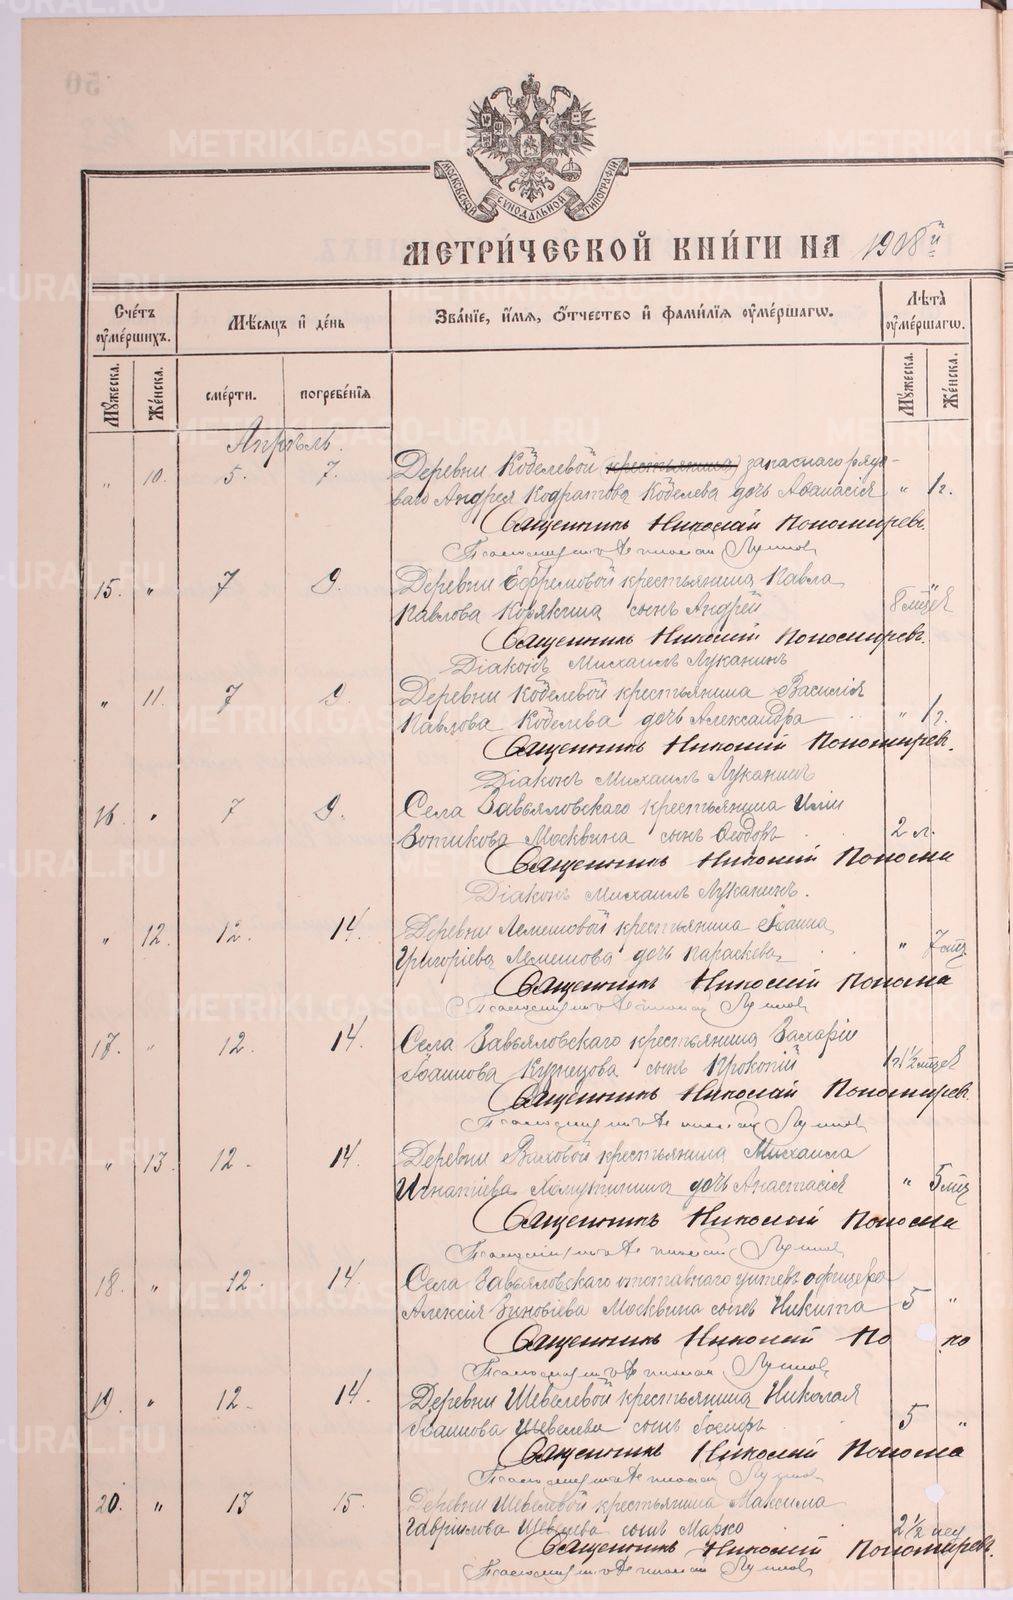 МОСКОВСКОЙ СѴНОДАЛЬНОЙ ТИПОГРАФІИ
МЕТРИ́ЧЕСКОЙ КНИ́ГИ НА 1908й
Сче́тъ ᲂу҆ме́ршихъ. Мѣ́сяцъ и҆ де́нь Зва́нїе, и҆́мя, ѻ҆́тчество и҆ фами́лїя ᲂу҆ме́ршагѡ. Лѣта̀ ᲂу҆ме́ршагѡ.
Му́жеска. Же́нска. сме́рти. погребе́нїѧ Му́жеска. Же́нска.
Апрѣль.
" 10. 5. 7. Деревни Кобелевой (крестьянина) запаснаго рядо-
ваго Андрея Кодратова Кобелева дочь Аѳанасія " 1 г.
Священникъ Николай Пономаревъ.
15. " 7 9. Деревни Ефремовой крестьянина Павла
Павлова Корякина сынъ Андрей 8 мцев "
Священникъ Николай Пономаревъ.
Діаконъ Михаилъ Луканинъ
" 11. 7 9. Деревни Кобелевой крестьянина Василія
Павлова Кобелева дочь Александра " 1 г.
Священникъ Николай Пономаревъ.
Діаконъ Михаилъ Луканинъ
16. " 7 9. Села Завьяловскаго крестьянина Иліи
Зотикова Москвина сынъ Ѳеодоръ 2 л.
Священникъ Николай Понома
Діаконъ Михаилъ Луканинъ.
" 12. 12. 14. Деревни Лемешовой крестьянина Іоанна
Григоріева Лемешова дочь Параскева " 7 мц
Священникъ Николай Понома
17. " 12. 14. Села Завьяловскаго крестьянина Захаріи
Іоаннова Кузнецова сынъ Прокопій 1 г. 1½ мцев
Священникъ Николай Пономаревъ.
" 13. 12. 14. Деревни Ваховой крестьянина Михаила
Игнатіева дочь Анастасія " 5 мц
Священникъ Николай Понома
18. " 12. 14. Села Завьяловскаго отставнаго унтеръ офицера
Алексія Зиновіева Москвина сынъ Никита 5 "
Священникъ Николай По
19. " 12. 14. Деревни Шевелевой крестьянина Николая
Іоаннова Шевелева сынъ Іосифъ 5 "
Священникъ Николай Понома
20. " 13 15. Деревни Шевелевой крестьянина Максима
Гавріилова Шевелева сынъ Марко 2½ нед
Священникъ Николай Пономаревъ.
METRIKI.GASO-URAL.RU